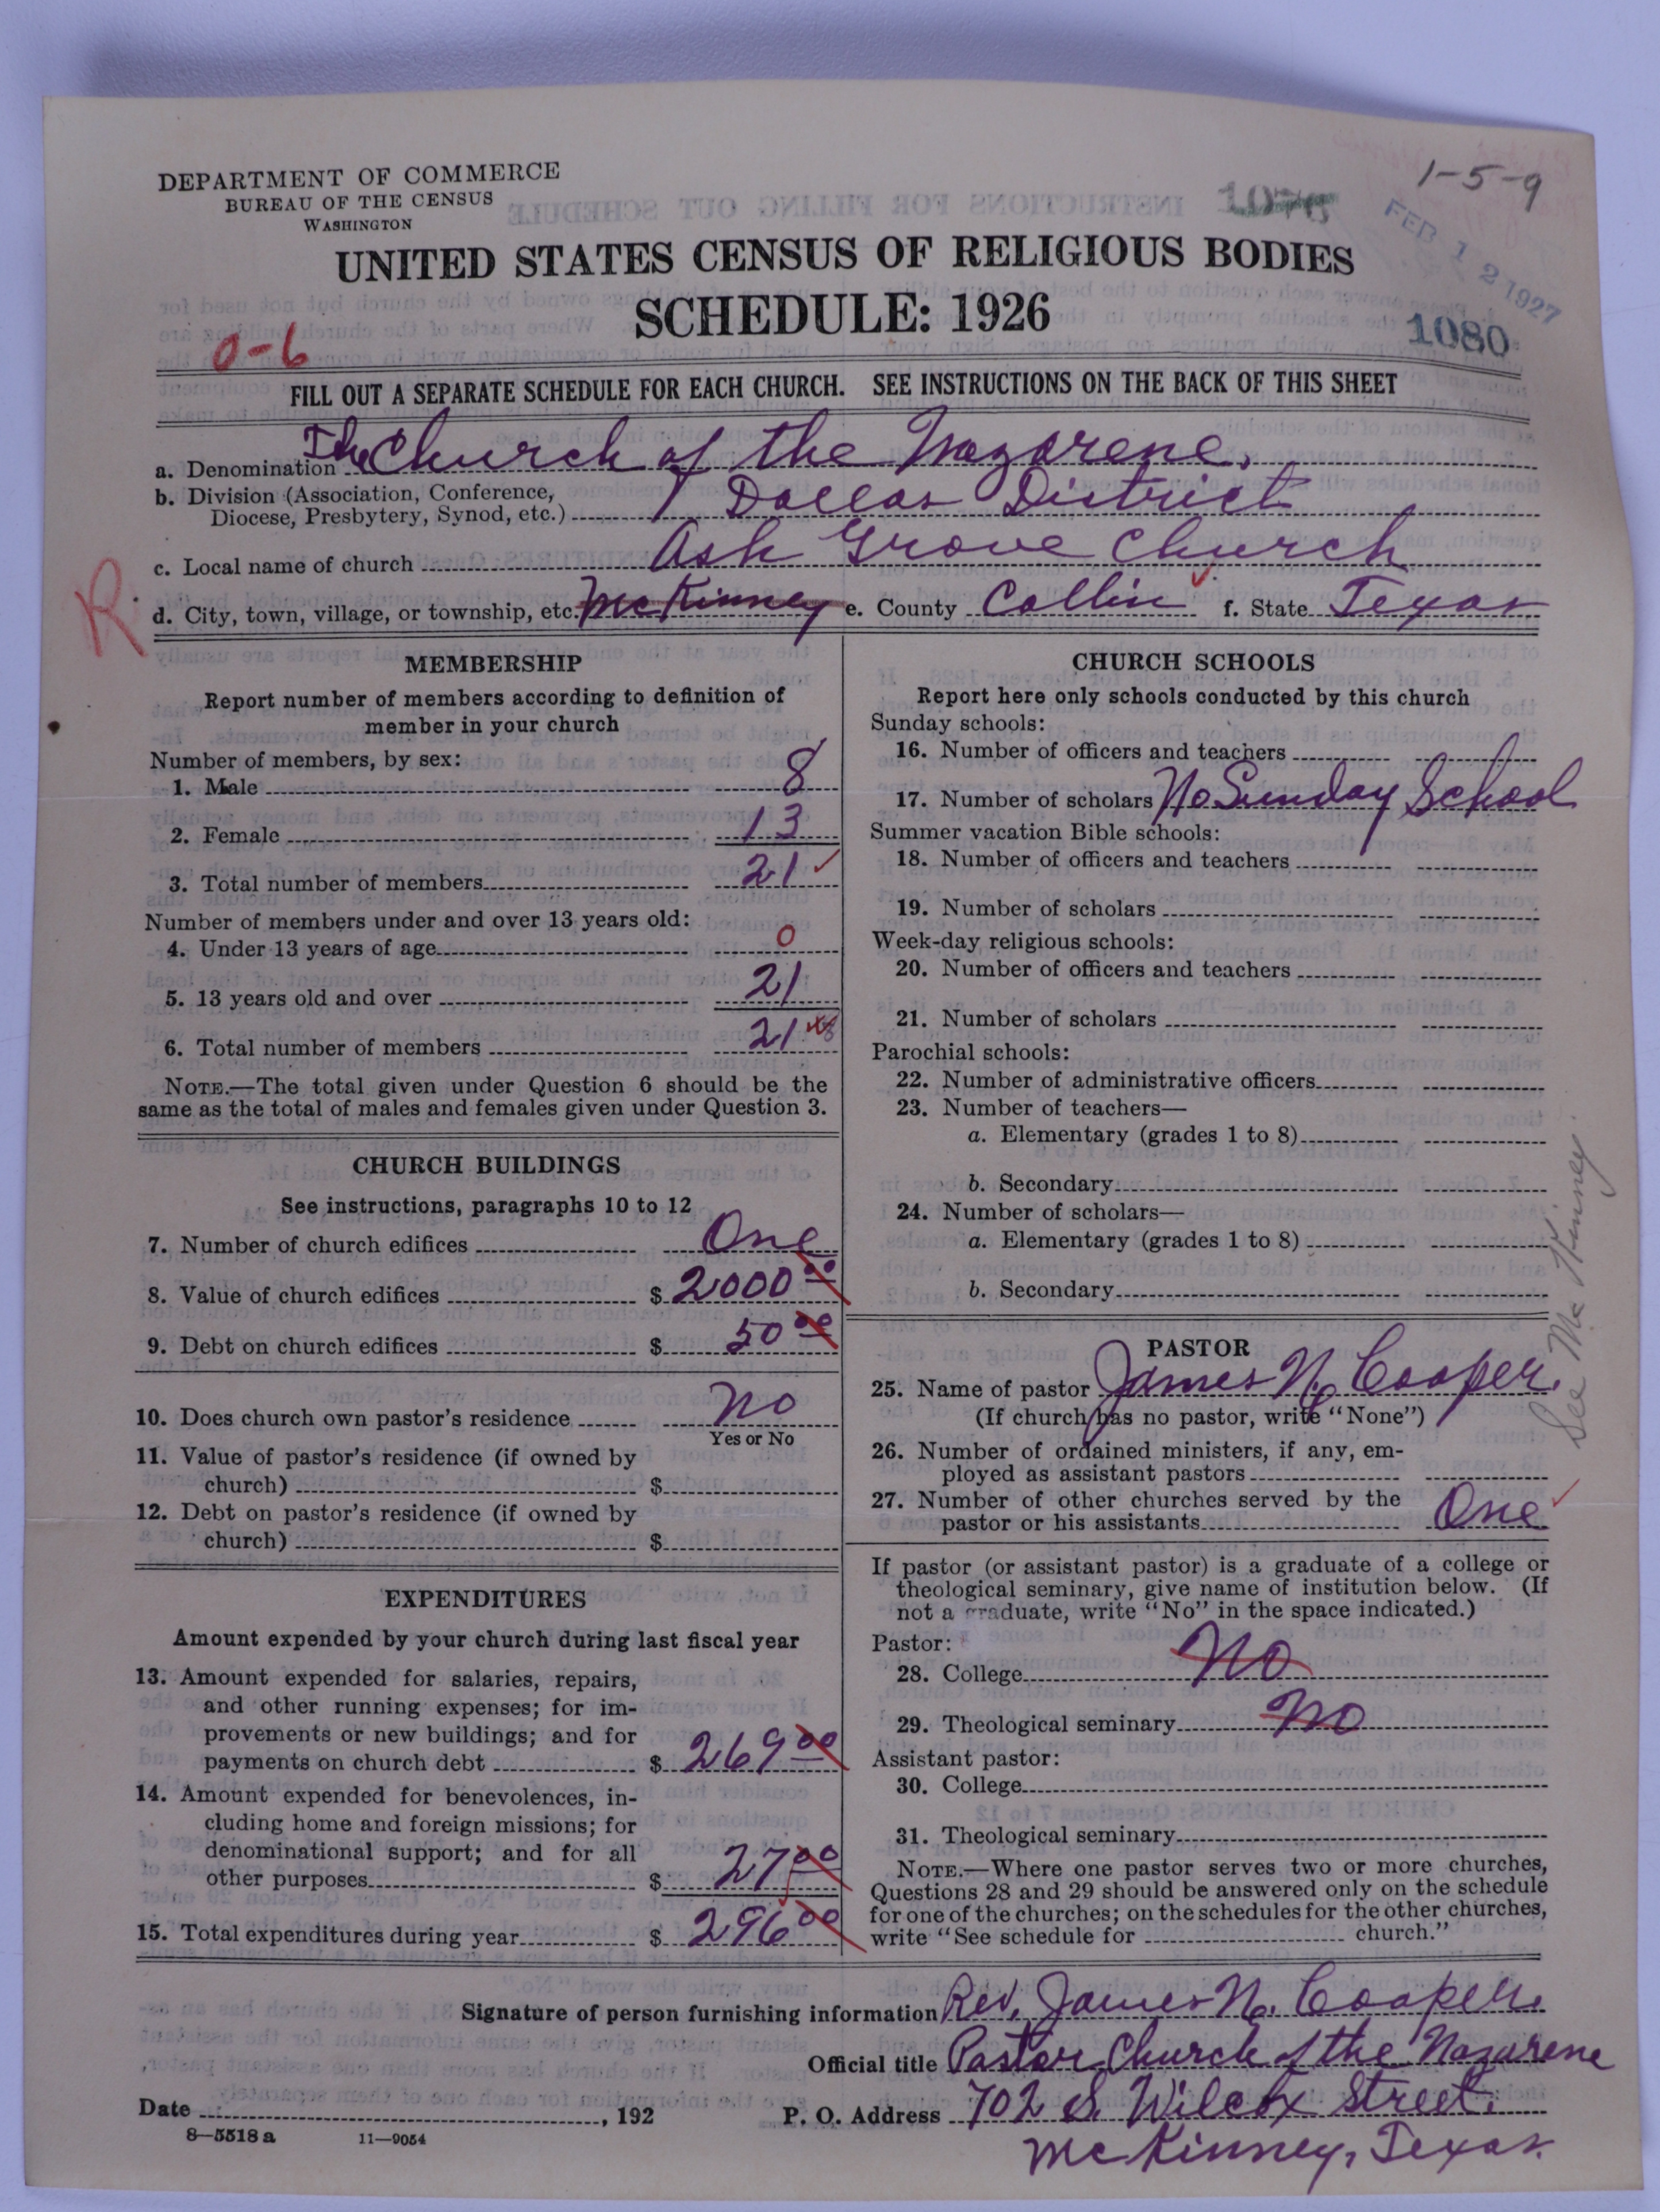 1-5-9
DEPARTMENT OF COMMERCE
BUREAU OF THE CENSUS
WASHINGTON
1076
FEB 12 1927
UNITED STATES CENSUS OF RELIGIOUS BODIES
SCHEDULE: 1926
1080
0-6
FILL OUT A SEPARATE SCHEDULE FOR EACH CHURCH. SEE INSTRUCTIONS ON THE BACK OF THIS SHEET
a. Denomination The Church of the Nazarene,
b. Division (Association, Conference,
Diocese, Presbytery, Synod, etc.) Dallas District
c. Local name of church Ash Grove Church
R
d. City, town, village, or township, etc. McKinney e. County Collin f. State Texas
MEMBERSHIP
Report number of members according to definition of
member in your church
Number of members, by sex:
1. Male 8
2. Female 13
3. Total number of members 21
Number of members under and over 13 years old:
4. Under 13 years of age 0
5. 13 years old and over 21
6. Total number of members 21
NOTE.—The total given under Question 6 should be the
same as the total of males and females given under Question 3.
CHURCH BUILDINGS
See instructions, paragraphs 10 to 12
7. Number of church edifices One
8. Value of church edifices $ 2000 00
9. Debt on church edifices $ 50 00
10. Does church own pastor's residence No
Yes or No
11. Value of pastor's residence (if owned by
church) $
12. Debt on pastor's residence (if owned by
church) $
EXPENDITURES
Amount expended by your church during last fiscal year
13. Amount expended for salaries, repairs,
and other running expenses; for im-
provements or new buildings; and for
payments on church debt $ 269 00
14. Amount expended for benevolences, in-
cluding home and foreign missions; for
denominational support; and for all
other purposes $ 27 00
15. Total expenditures during year $ 296 00
CHURCH SCHOOLS
Report here only schools conducted by this church
Sunday schools:
16. Number of officers and teachers
17. Number of scholars No Sunday School
Summer vacation Bible schools:
18. Number of officers and teachers
19. Number of scholars
Week-day religious schools:
20. Number of officers and teachers
21. Number of scholars
Parochial schools:
22. Number of administrative officers
23. Number of teachers—
a. Elementary (grades 1 to 8)
b. Secondary
24. Number of scholars—
a. Elementary (grades 1 to 8)
b. Secondary
See McKinney.
PASTOR
25. Name of pastor James N. Cooper.
(If church has no pastor, write "None")
26. Number of ordained ministers, if any, em-
ployed as assistant pastors
27. Number of other churches served by the
pastor or his assistants One
If pastor (or assistant pastor) is a graduate of a college or
theological seminary, give name of institution below. (If
not a graduate, write "No" in the space indicated.)
Pastor:
28. College No
29. Theological seminary No
Assistant pastor:
30. College
31. Theological seminary
NOTE.—Where one pastor serves two or more churches,
Questions 28 and 29 should be answered only on the schedule
for one of the churches; on the schedules for the other churches,
write "See schedule for church."
Signature of person furnishing information Rev. James N. Cooper.
Official title Pastor Church of the Nazarene
Date , 192 P. O. Address 702 S. Wilcox Street.
8—5518 a 11—9054
McKinney, Texas.